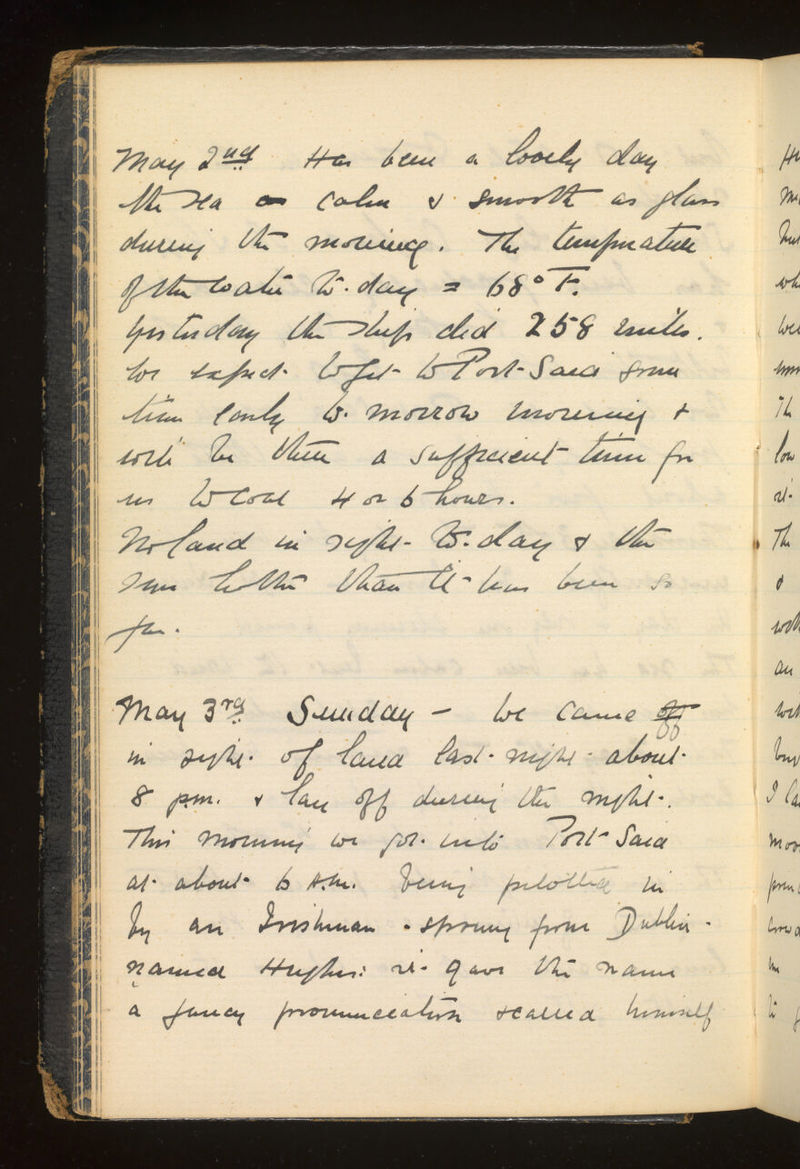 May 2nd Has been a lovely day
the sea as calm & smooth as glass
during the morning. The temperature
of the water to-day = 68° F.
Yesterday the ship did 258 miles.
We expect to get to Port Said some
time early to-morrow morning &
will be there a sufficient time for
us to coal 4 or 6 hours.
No land in sight to-day & the
sun hotter than it has been so
far.
May 3rd Sunday - We came off
in sight of land last night about
8 p.m. & lay off during the night.
This morning we got into Port Said
at about 6 A.M. being pilotted in
by an Irishman - sprung from Dublin -
named Hughes: gave the name
a fancy pronunciation & called himself